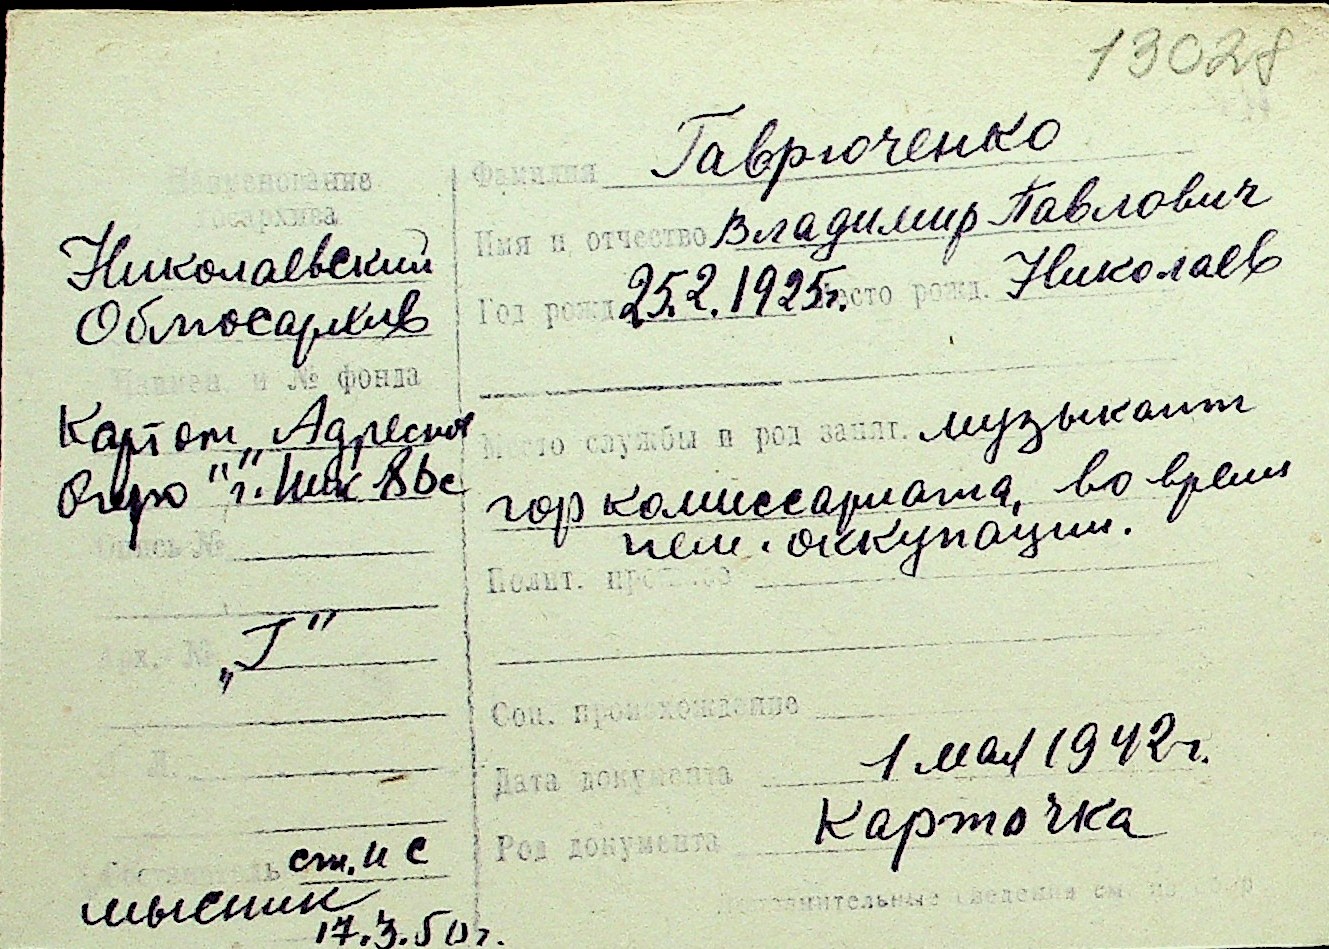 13028
Наименование
госархива
Николаевский
Облгосархив
Наимен. и № фонда
Картот. „Адресное
бюро" г. Ник
Опись №
Арх. №
„Г"
Л.
Составитель ст. н с
мысник
17.3.50 г.
Фамилия Гаврюченко
Имя и отчество Владимир Павлович
Год рожд. 25.2.1925г. Место рожд. Николаев
Место службы и род занят. музыкант
гор комиссариата, во время
нем. оккупации.
Полит. прошлое
Соц. происхождение
Дата документа 1 мая 1942 г.
Род документа Карточка
Дополнительные сведения см. на обор.